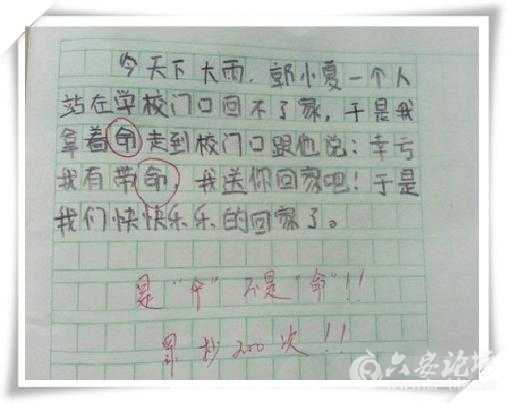 今天下大雨,郭小夏一个人
站在学校门口回不了家,于是我
拿着命走到校门口跟他说:幸亏
我有带命,我送你回家吧!于是
我们快快乐乐的回家了。
是"伞"不是"命"!!
罚抄200次!!
六安论坛